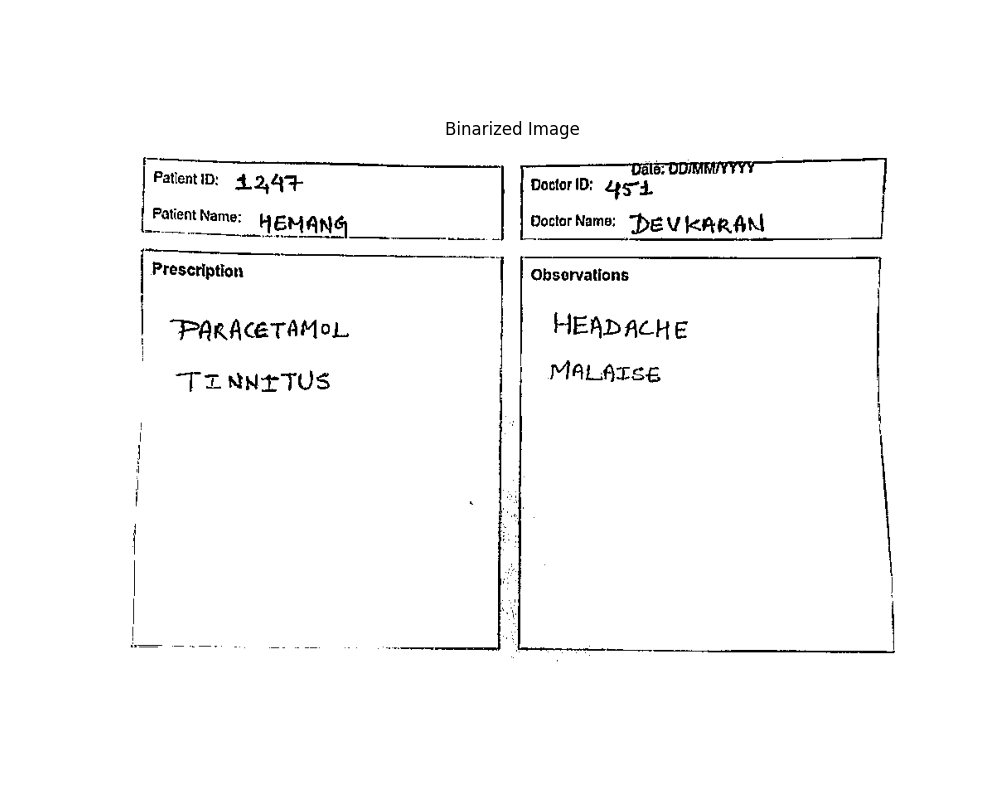 Binarized Image
Patient ID: 1247
Patient Name: HEMANG
Date: DD/MM/YYYY
Doctor ID: 451
Doctor Name: DEVKARAN
Prescription
PARACETAMOL
TINNITUS
Observations
HEADACHE
MALAISE